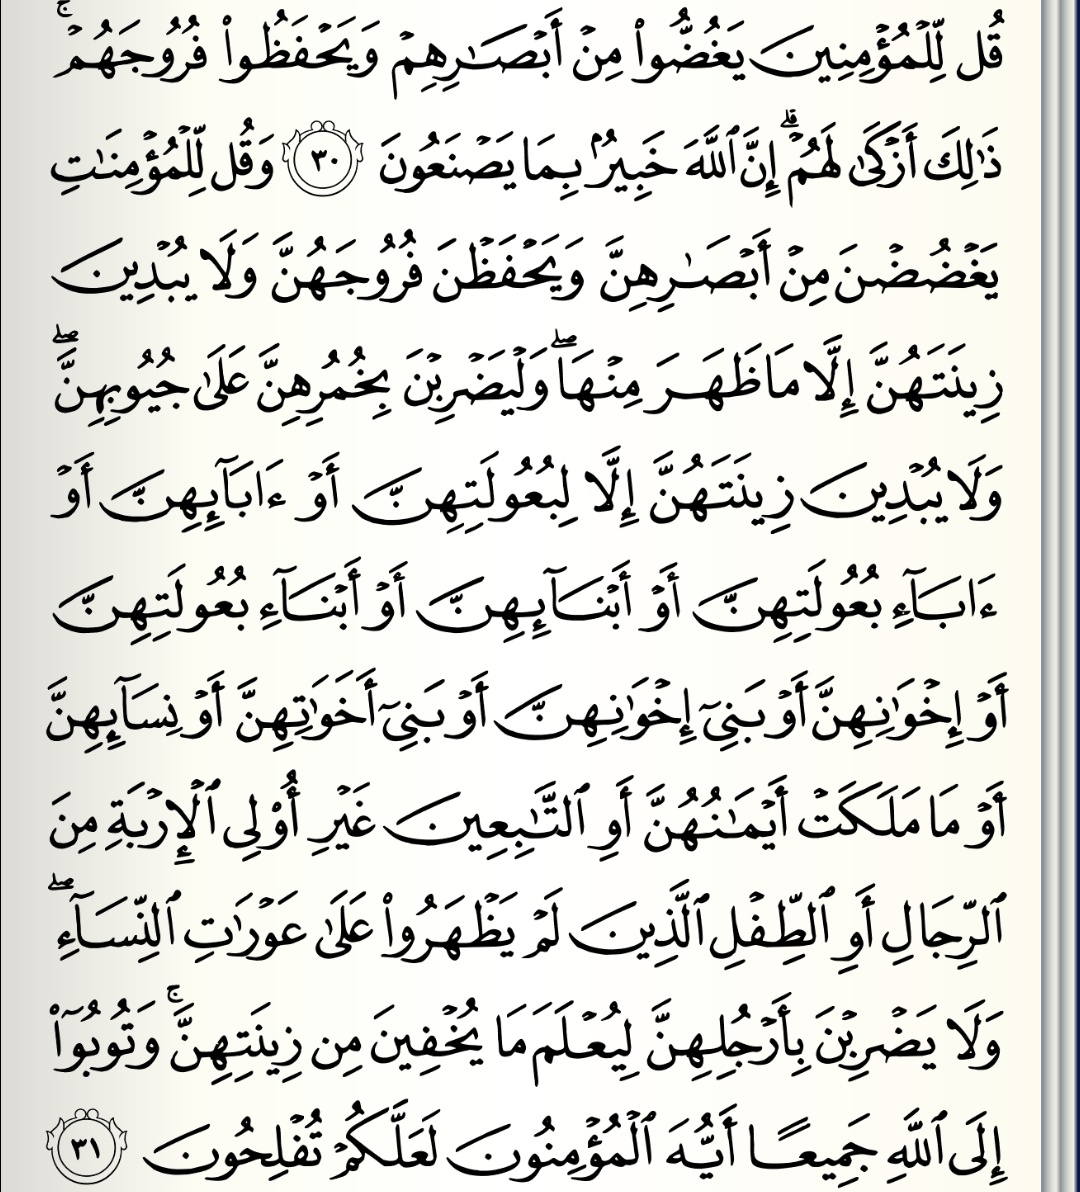 قُل لِّلۡمُؤۡمِنِينَ يَغُضُّواْ مِنۡ أَبۡصَٰرِهِمۡ وَيَحۡفَظُواْ فُرُوجَهُمۡۚ
ذَٰلِكَ أَزۡكَىٰ لَهُمۡۗ إِنَّ ٱللَّهَ خَبِيرُۢ بِمَا يَصۡنَعُونَ ٣٠ وَقُل لِّلۡمُؤۡمِنَٰتِ
يَغۡضُضۡنَ مِنۡ أَبۡصَٰرِهِنَّ وَيَحۡفَظۡنَ فُرُوجَهُنَّ وَلَا يُبۡدِينَ
زِينَتَهُنَّ إِلَّا مَا ظَهَرَ مِنۡهَاۖ وَلۡيَضۡرِبۡنَ بِخُمُرِهِنَّ عَلَىٰ جُيُوبِهِنَّۖ
وَلَا يُبۡدِينَ زِينَتَهُنَّ إِلَّا لِبُعُولَتِهِنَّ أَوۡ ءَابَآئِهِنَّ أَوۡ
ءَابَآءِ بُعُولَتِهِنَّ أَوۡ أَبۡنَآئِهِنَّ أَوۡ أَبۡنَآءِ بُعُولَتِهِنَّ
أَوۡ إِخۡوَٰنِهِنَّ أَوۡ بَنِيٓ إِخۡوَٰنِهِنَّ أَوۡ بَنِيٓ أَخَوَٰتِهِنَّ أَوۡ نِسَآئِهِنَّ
أَوۡ مَا مَلَكَتۡ أَيۡمَٰنُهُنَّ أَوِ ٱلتَّٰبِعِينَ غَيۡرِ أُوْلِي ٱلۡإِرۡبَةِ مِنَ
ٱلرِّجَالِ أَوِ ٱلطِّفۡلِ ٱلَّذِينَ لَمۡ يَظۡهَرُواْ عَلَىٰ عَوۡرَٰتِ ٱلنِّسَآءِۖ
وَلَا يَضۡرِبۡنَ بِأَرۡجُلِهِنَّ لِيُعۡلَمَ مَا يُخۡفِينَ مِن زِينَتِهِنَّۚ وَتُوبُوٓاْ
إِلَى ٱللَّهِ جَمِيعًا أَيُّهَ ٱلۡمُؤۡمِنُونَ لَعَلَّكُمۡ تُفۡلِحُونَ ٣١